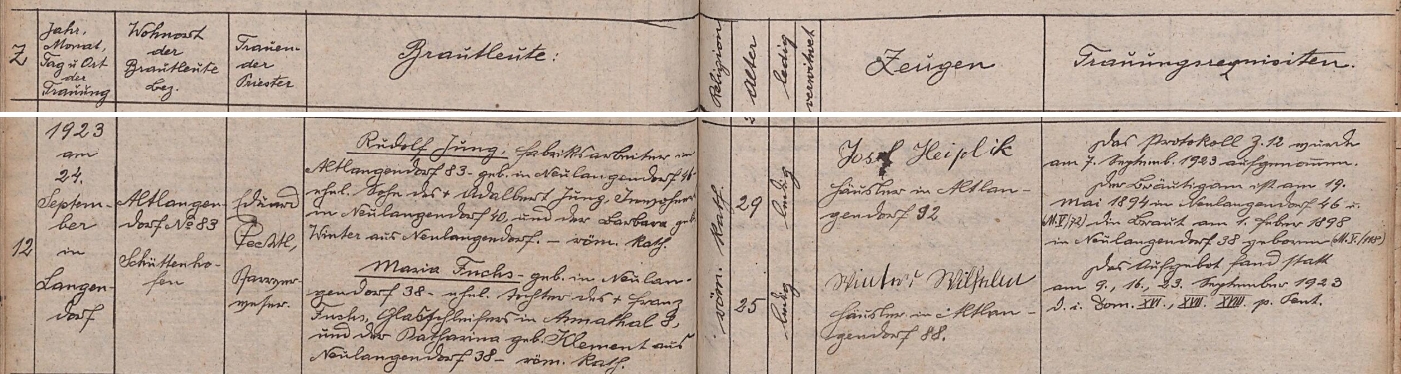 Z
Jahr,
Monat,
Tag u Ort
der
Trauung
Wohnort
der
Brautleute
bez.
Trauen-
der
Priester
Brautleute:
Religion
Alter
ledig
verwitwet
Zeugen
Trauungsrequisiten.
12
1923
am
24.
Septem-
ber
in
Langen-
dorf
Altlangen-
dorf No 83
Schüttenho-
fen
Eduard
Pechtl,
Pfarrver-
weser.
Rudolf Jung, Fabriksarbeiter in
Altlangendorf 83 - geb. in Neulangendorf 46
ehel. Sohn des + Adalbert Jung, Inwohners
in Neulangendorf 40, und der Barbara geb.
Winter aus Neulangendorf. - röm. kath.
Maria Fuchs - geb. in Neulan-
gendorf 38 - ehel. Tochter des + Franz
Fuchs, Glasschleifers in Annathal 8,
und der Katharina geb. Klement aus
Neulangendorf 38 - röm. kath.
röm. kath.
29
ledig
25
ledig
Josef
Häusler in Altlan-
gendorf 92
Winter Wilhelm
Häusler in Altlan-
gendorf 88.
Das Protokoll Z. 12 wurde
am 7. Septemb. 1923 aufgenommen.
Der Bräutigam ist am 19.
Mai 1894 in Neulangendorf 46 u.
(M.V/72) die Braut am 7. Feber 1898
in Neulangendorf 38 geboren
Das Aufgebot fand statt
am 9., 16., 23. September 1923
d. i. Dom. XVI., XVII. XVIII. p. Pent.